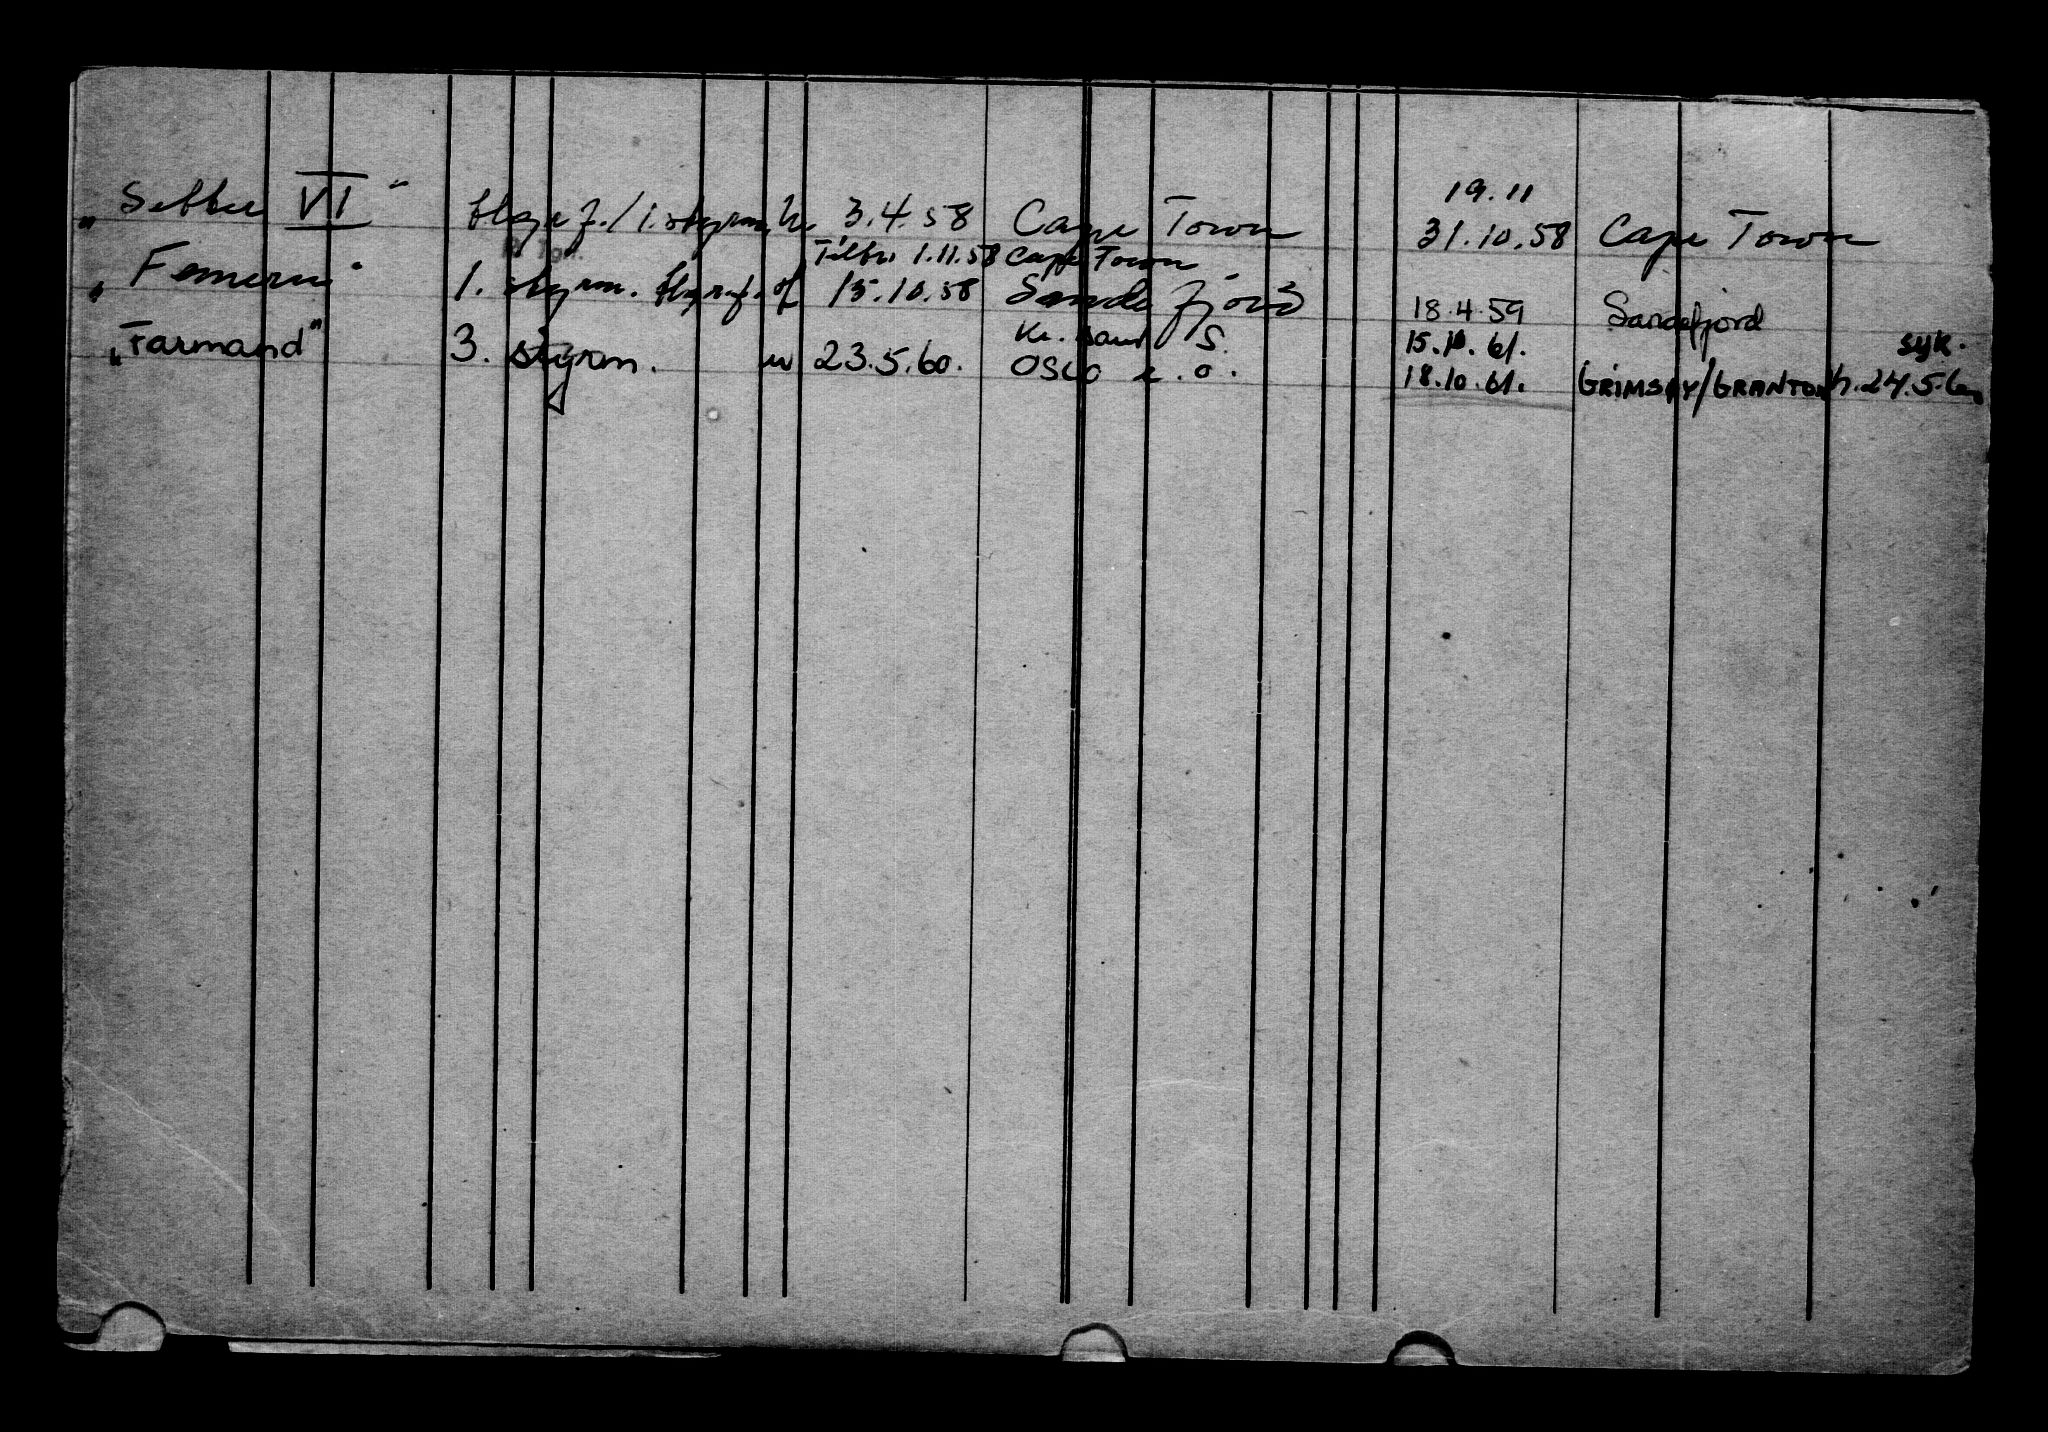 19.11
„Setter VI" 1. styrm. 3.4.58 Cape Town 31.10.58 Cape Town
Tilbr. 1.11.58 Cape Town
„Femern" 1. styrm. 15.10.58 Sandefjord 18.4.59 Sandefjord
Kr. sand S. 15.10.61. syk.
„Farmand" 3. styrm. 23.5.60. OSLO e.o. 18.10.61. GRIMSBY/GRANTON h.24.5.60